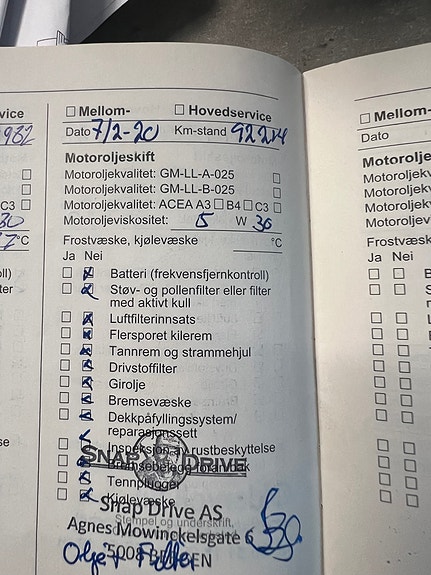 vice
☐ Mellom- ☐ Hovedservice
☐ Mellom-
Dato 7/2-20 Km-stand 92214
Dato
Motoroljeskift
Motoroljekvalitet: GM-LL-A-025 ☐
Motoroljekvalitet: GM-LL-B-025 ☐
Motoroljekvalitet: ACEA A3 ☐ B4 ☐ C3 ☐
Motoroljeviskositet: 5 W 30
Frostvæske, kjølevæske °C
Ja Nei
Batteri (frekvensfjernkontroll)
Støv- og pollenfilter eller filter
med aktivt kull
Luftfilterinnsats
Flersporet kilerem
Tannrem og strammehjul
Drivstoffilter
Girolje
Bremsevæske
Dekkpåfyllingssystem/
reparasjonssett
Inspeksjon av rustbeskyttelse
SNAP DRIVE
Tennplugger
Kjølevæske
Snap Drive AS
Stempel og underskrift,
Agnes Mowinckelsgate 6
5008 BERGEN
Olje + Filter
C3 ☐
°C
Motorolje
Motoroljekv
Motoroljekv
Motoroljekv
Motoroljevi
Frostvæske
Ja Nei